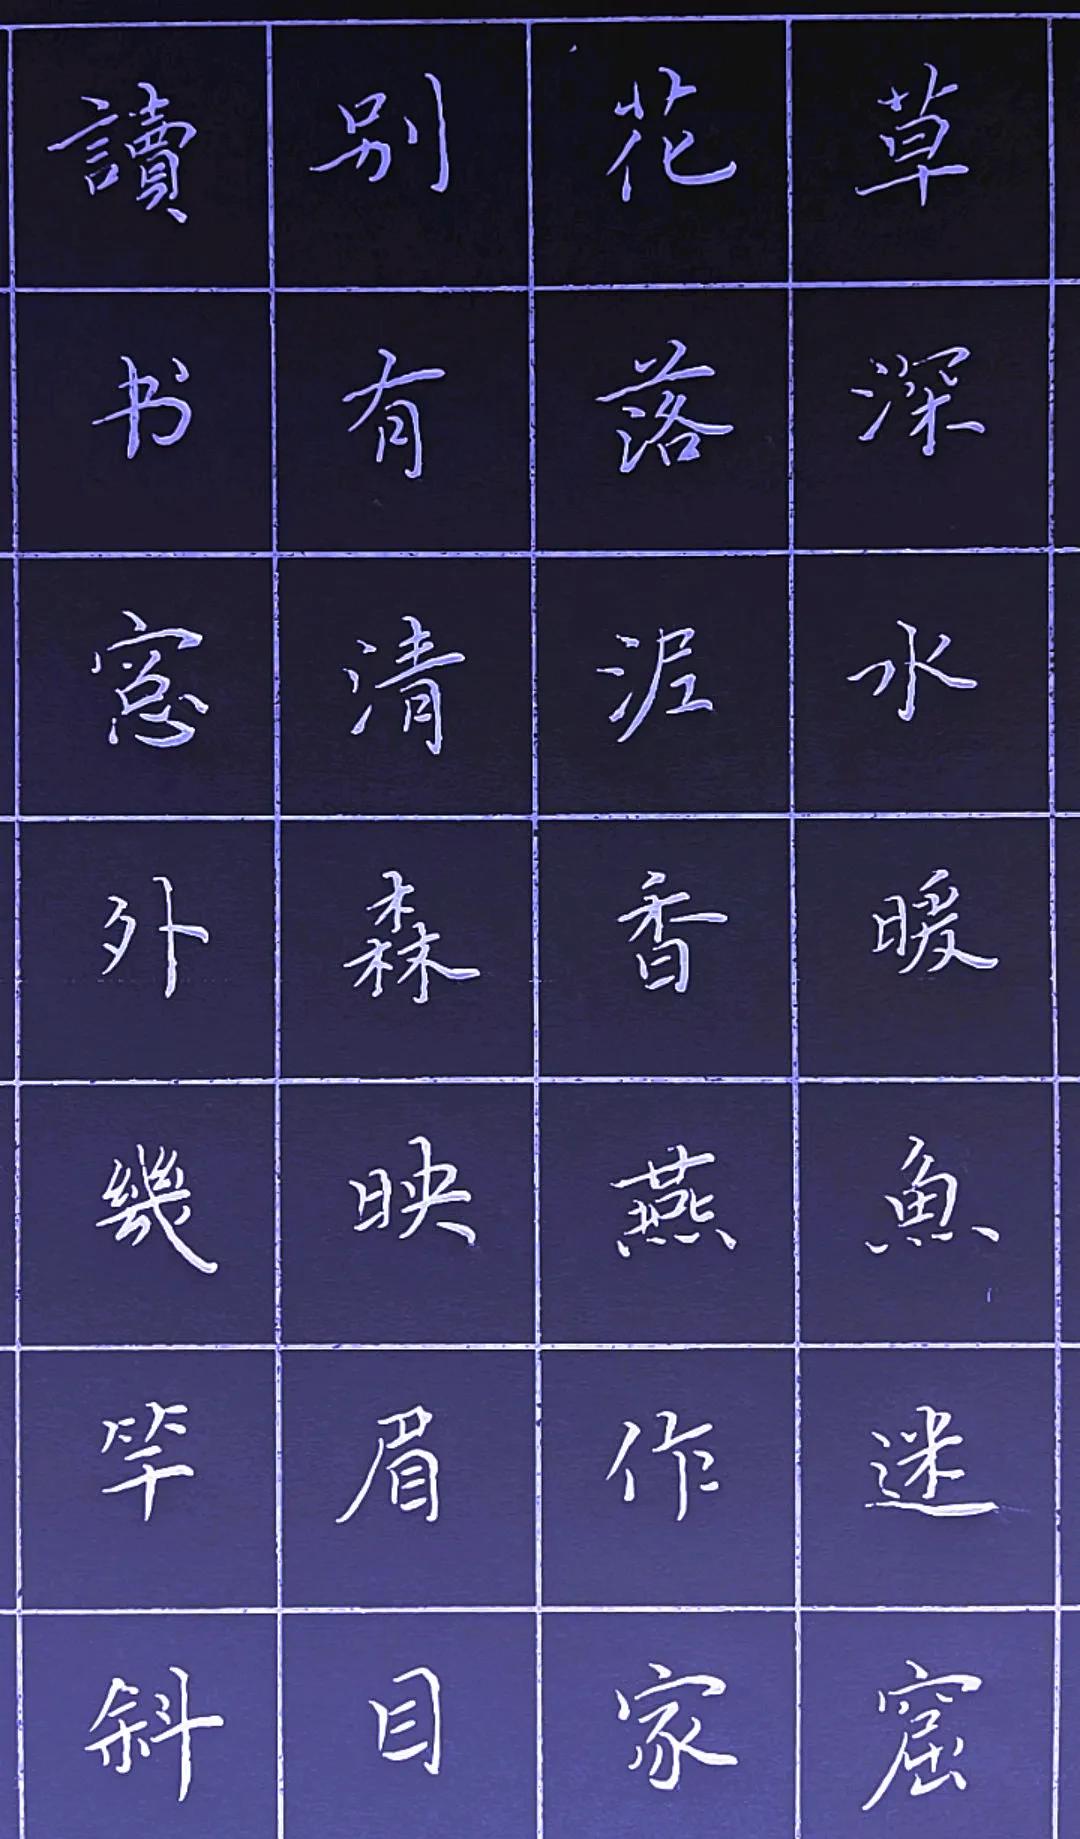 草深水暖魚迷窟
花落泥香燕作家
别有清森映眉目
讀书窓外幾竿斜